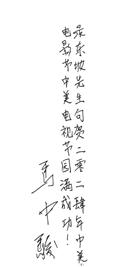 录东坡先生句贺二零二肆年中美
电影节中美电视节圆满成功!
马中骏